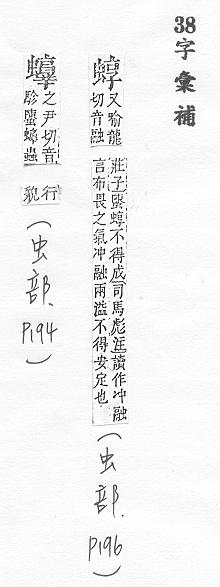 38字彙補
蜳
又喻龍
切音融
莊子螴蜳不得成司馬彪注讀作冲融
言布畏之氣冲融兩溢不得安定也
(虫部. P196)
之尹切音
蟲
行
貌
(虫部. P194)